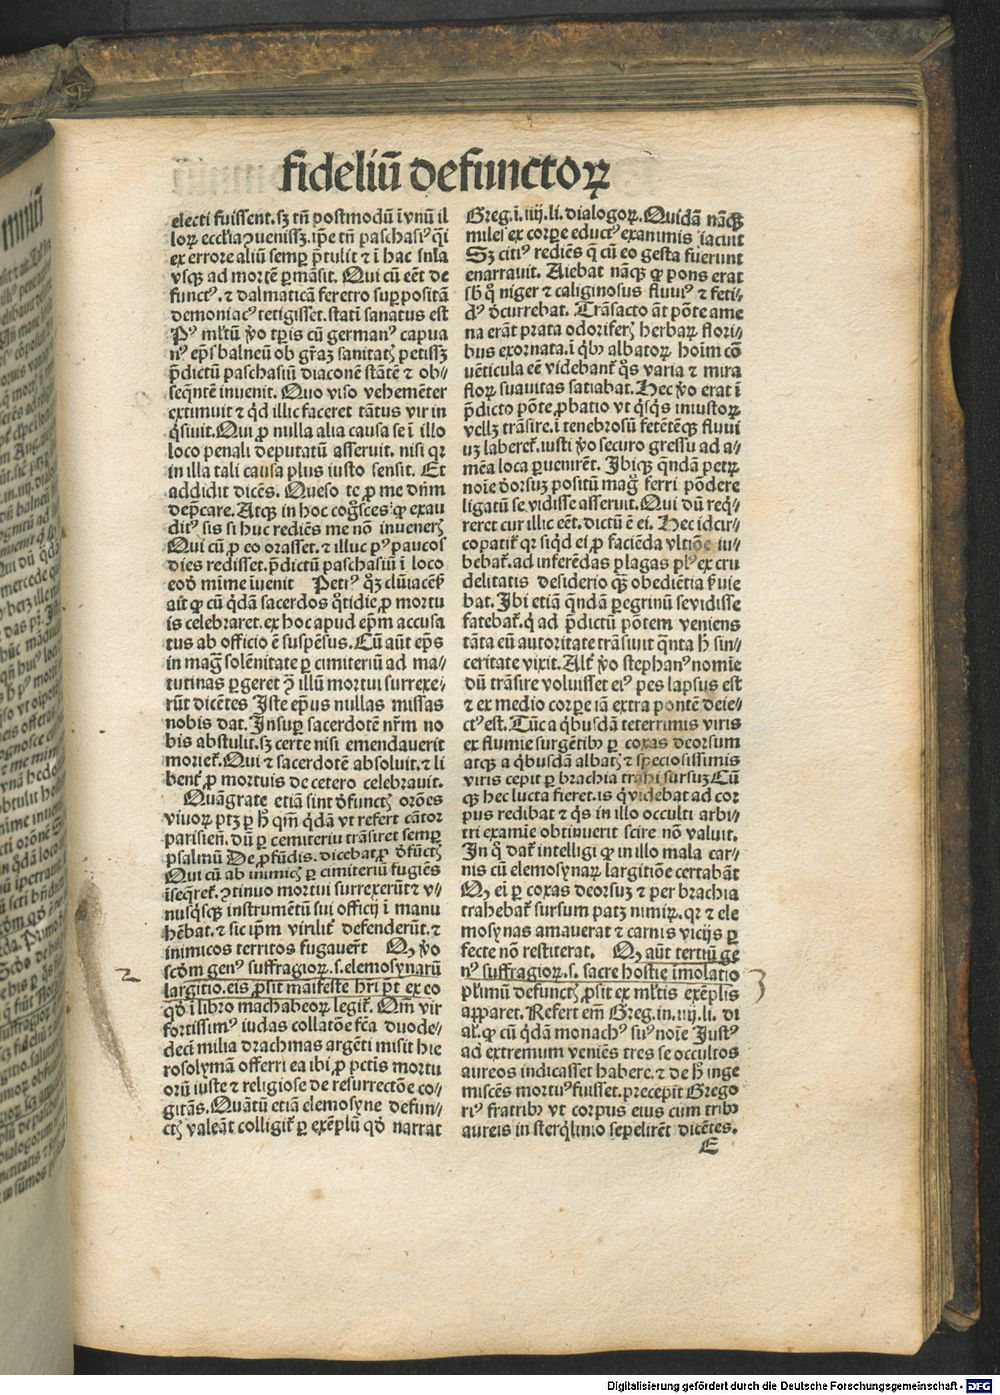 fideliū defunctoꝝ
electi fuissent. sꝫ tn̄ postmodū ī vnū il
loꝝ eccl'ia ꝯuenissꝫ. ip̄e tn̄ paschasiꝰ q̇i
ex errore aliū semꝑ p̄tulit ⁊ ī hac sn̄ia
vsqꝫ ad mortē ꝑmāsit. Qui cū eēt de
functꝰ. ⁊ dalmaticā feretro suꝑpositā
demoniacꝰ tetigisset. statī sanatus est
Pꝰ ml'tū v̄o tꝑis cū germanꝰ capua
nꝰ ep̄s balneū ob gr̄aꝫ sanitatꝭ petissꝫ
p̄dictū paschasiū diaconē stātē ⁊ ob⸗
seq̄ntē inuenit. Quo viso vehemēter
extimuit ⁊ qd̄ illic faceret tātus vir in
q̇siuit. Qui ꝓ nulla alia causa se ī illo
loco penali deputatū asseruit. nisi qꝛ
in illa tali causa plus iusto sensit. Et
addidit dicēs. Queso te ꝓ me dn̄m
dep̄care. Atqꝫ in hoc cogsces̄ ꝙ exau
ditꝰ sis si huc rediēs me nō inuenerꝭ
Qui cū ꝓ eo orasset. ⁊ illuc pꝰ paucos
dies redisset. p̄dictū paschasiū ī loco
eod̄ mīme īuenit Petrꝰ q̊ꝫ clūiacēs̄
ait ꝙ cū q̇dā sacerdos q̊tidie ꝓ mortu
is celebraret. ex hoc apud ep̄m accusa
tus ab officio ē suspēsus. Cū aūt ep̄s
in maḡ solēnitate ꝑ cimiteriū ad ma⸗
tutinas ꝑgeret ꝯ̄ illū mortui surrexe⸗
rūt dicētes Iste ep̄us nullas missas
nobis dat. Insuꝑ sacerdotē nr̄m no
bis abstulit. sꝫ certe nisi emendauerit
moriet᷑. Qui ⁊ sacerdotē absoluit. ⁊ li
bent᷑ ꝓ mortuis de cetero celebrauit.
Quāgrate etiā sint d̄functꝭ orōes
viuoꝝ ptꝫ ꝑ h̄ qm̄ q̇dā vt refert cātor
parisien̄. dū ꝑ cemiteriū trāsiret semꝑ
psalmū De ꝓfūdis. dicebat ꝓ d̄fūctꝭ
Qui cū ab inimicꝭ ꝑ cimiteriū fugiēs
īseq̄ret᷑. ꝯtinuo mortui surrexerūt ⁊ v⸗
nusq̇sqꝫ instrumētū sui officij ī manu
hēbat. ⁊ sic ip̄m virilit᷑ defenderūt. ⁊
inimicos territos fugauer̄t Qꝫ v̄o
scd̄m genꝰ suffragioꝝ. s. elemosynarū
largitio. eis ꝓsit maīfeste hr̄i pt̄ ex eo
qd̊ ī libro machabeoꝝ legit᷑. Qm̄ vir
fortissimꝰ iudas collatōe fc̄a duode⸗
decī milia drachmas argēti misit hie
rosolymā offerri ea ibi ꝓ pctīs mortu
orū iuste ⁊ religiose de resurrectōe co⸗
gitās. Quātū etiā elemosyne defun⸗
ctꝭ valeāt colligit᷑ ꝑ exēplū qd̊ narrat
Greg. ī. iiij. li. dialogoꝝ. Quidā nāqꝫ
miles ex corꝑe eductꝰ exanimis iacuit
Sꝫ citiꝰ rediēs q̄ cū eo gesta fuerunt
enarrauit. Aiebat nāqꝫ ꝙ pons erat
sb̄ q̊ niger ⁊ caliginosus fluuiꝰ ⁊ feti⸗
dꝰ d̄currebat. Trāsacto āt pōte ame
na erāt prata odoriferꝭ herbaꝝ flori⸗
bus exornata. ī q̇bꝰ albatoꝝ hoīm cō
uēticula eē videbant᷑ q̊s varia ⁊ mira
floꝝ suauitas satiabat. Hec v̄o erat ī
p̄dicto pōte ꝓbatio vt q̇sq̇s iniustoꝝ
vellꝫ trāsire. ī tenebrosū fetētēqꝫ fluui
uꝫ laberet᷑. iusti v̄o securo gressu ad a⸗
mēa loca ꝑuenirēt. Ibiqꝫ q̄ndā petꝝ
noīe d̄orsuꝫ positū maḡ ferri pōdere
ligatū se vidisse asseruit. Qui dū req̇⸗
reret cur illic eēt. dictū ē ei. Hec idcir⸗
co patit᷑ qꝛ siqd̄ ei ꝓ faciēda vltiōe iu⸗
bebat᷑. ad inferēdas plagas plꝰ ex cru
delitatis desiderio qꝫ obediētia ẜuie
bat. Ibi etiā q̄ndā ꝑegrinū se vidisse
fatebat᷑. q̇ ad p̄dictū pōtem veniens
tāta eū autoritate trāsiuit q̄nta h̄ sin⸗
ceritate vixit. Alt᷑ v̄o stephanꝰ nomīe
dū trāsire voluisset eiꝰ pes lapsus est
⁊ ex medio corꝑe iā extra pontē deie⸗
ctꝰ est. Tūc a q̇busdā teterrimis viris
ex flumīe surgētibꝰ ꝑ coxas deorsum
atqꝫ a q̇busdā albatꝭ ⁊ speciosissimis
viris cepit ꝑ brachia trahi sursuꝫ Cū
qꝫ hec lucta fieret. is q̇ videbat ad cor
pus redibat ⁊ q̇s in illo occulti arbi⸗
tri examīe obtinuerit scire nō valuit.
In q̊ dat᷑ intelligi ꝙ in illo mala car⸗
nis cū elemosynaꝝ largitiōe certabāt
Qꝫ ei ꝑ coxas deorsuꝫ ⁊ per brachia
trahebat᷑ sursum patꝫ nimiꝝ. qꝛ ⁊ ele
mosynas amauerat ⁊ carnis vicijs ꝑ
fecte nō restiterat. Qꝫ aūt tertiū ge
nꝰ suffragioꝝ. s. sacre hostie īmolatio
pl'imū defunctꝭ ꝓsit ex ml'tis exēplis
apparet. Refert em̄ Greg. in. iiij. li. di
al'. ꝙ cū q̇dā monachꝰ suꝰ noīe Iustꝰ
ad extremum veniēs tres se occultos
aureos indicasset habere. ⁊ de h̄ inge
miscēs mortuꝰ fuisset. precepit Grego
riꝰ fratribꝰ vt corpus eius cum tribꝰ
aureis in sterq̇linio sepelirēt dicētes.
E
2
3
Digitalisierung gefördert durch die Deutsche Forschungsgemeinschaft - DFG